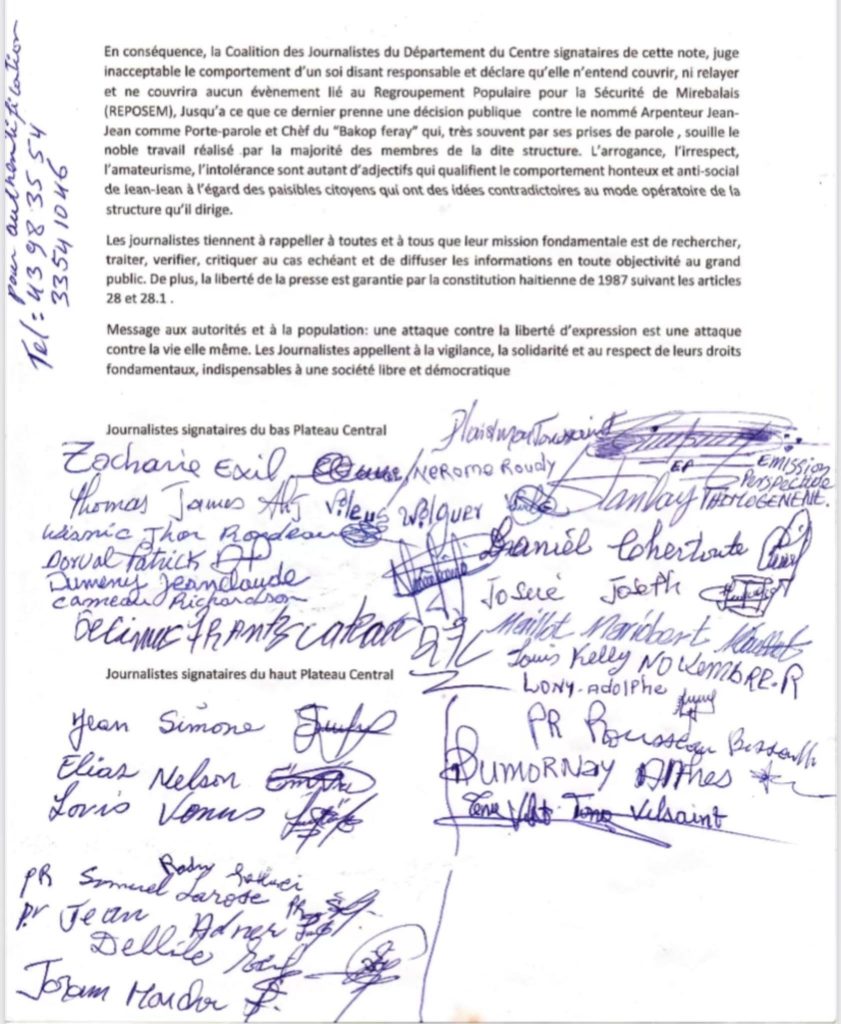 pour authentification
Tel: 43 98 35 54
3354 1046
En conséquence, la Coalition des Journalistes du Département du Centre signataires de cette note, juge
inacceptable le comportement d'un soi disant responsable et déclare qu'elle n'entend couvrir, ni relayer
et ne couvrira aucun évènement lié au Regroupement Populaire pour la Sécurité de Mirebalais
(REPOSEM), Jusqu'a ce que ce dernier prenne une décision publique contre le nommé Arpenteur Jean-
Jean comme Porte-parole et Chèf du "Bakop feray" qui, très souvent par ses prises de parole , souille le
noble travail réalisé par la majorité des membres de la dite structure. L'arrogance, l'irrespect,
l'amateurisme, l'intolérance sont autant d'adjectifs qui qualifient le comportement honteux et anti-social
de Jean-Jean à l'égard des paisibles citoyens qui ont des idées contradictoires au mode opératoire de la
structure qu'il dirige.
Les journalistes tiennent à rappeller à toutes et à tous que leur mission fondamentale est de rechercher,
traiter, verifier, critiquer au cas echéant et de diffuser les informations en toute objectivité au grand
public. De plus, la liberté de la presse est garantie par la constitution haitienne de 1987 suivant les articles
28 et 28.1 .
Message aux autorités et à la population: une attaque contre la liberté d'expression est une attaque
contre la vie elle même. Les Journalistes appellent à la vigilance, la solidarité et au respect de leurs droits
fondamentaux, indispensables à une société libre et démocratique
Journalistes signataires du bas Plateau Central
Toussaint
Zacharie Exil
Nerome Roudy
EMISSION
Perspective
Thomas James
Wilguer
Stanley THIMOGENE
Wismic Thor Rondeau
Daniel Cohertoute
Dorval Patrick DP
Dumeny Jeanclaude
Josué Joseph
Cameau Richardson
Decimus FRANTZ
Maillot Maridbert
Louis Kelly NOVEMBRE-R
LONY-ADOLPHE
Journalistes signataires du haut Plateau Central
Jean Simone
PR Rousseau
Elias Nelson
DUMORNAY
Louis Venus
Velsaint
PR Samuel Larose
Pr Jean Adner
Dellile
Joram